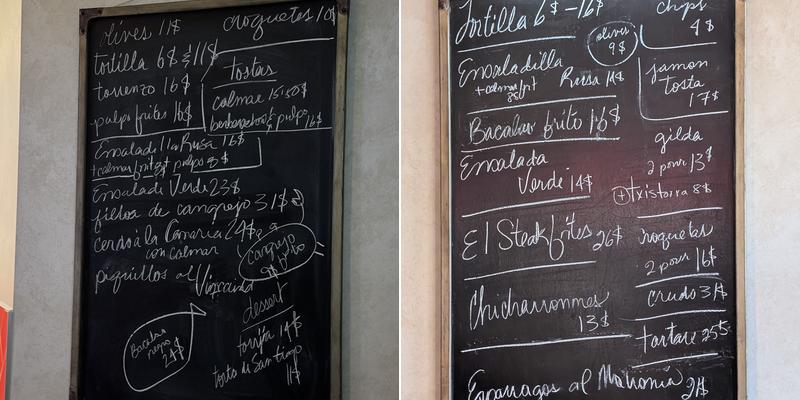 olives 11$
croquetas 10$
tortilla 6$ 11$
torrezno 16$
pulpo frites 16$
tostas
calamar 15.50$
berberechos pulpo 16$
Ensaladilla Rusa 16$
+calamar frit pulpo
Ensalada Verde 23$
filloa de cangrejo 31$
cerdo à la Canaria 24$
con calmar
cangrejo frito
9$
piquillos al Vizcaina
dessert
torrija 14$
torta di Santiago
11$
Bacalao
negro
24$
Tortilla 6$ - 16$
chips
4$
olives
9$
Ensaladilla
Rusa 14$
+calmar frit
8$
jamon
tosta
17$
Bacalao frito 16$
gilda
2 pour 13$
+ txistorra 8$
Ensalada
Verde 14$
El Steak frites 26$
croquetas
2 pour 16$
Chicharronnes
13$
crudo 31$
tartare 25$
Esparragos al Mahonia 21$